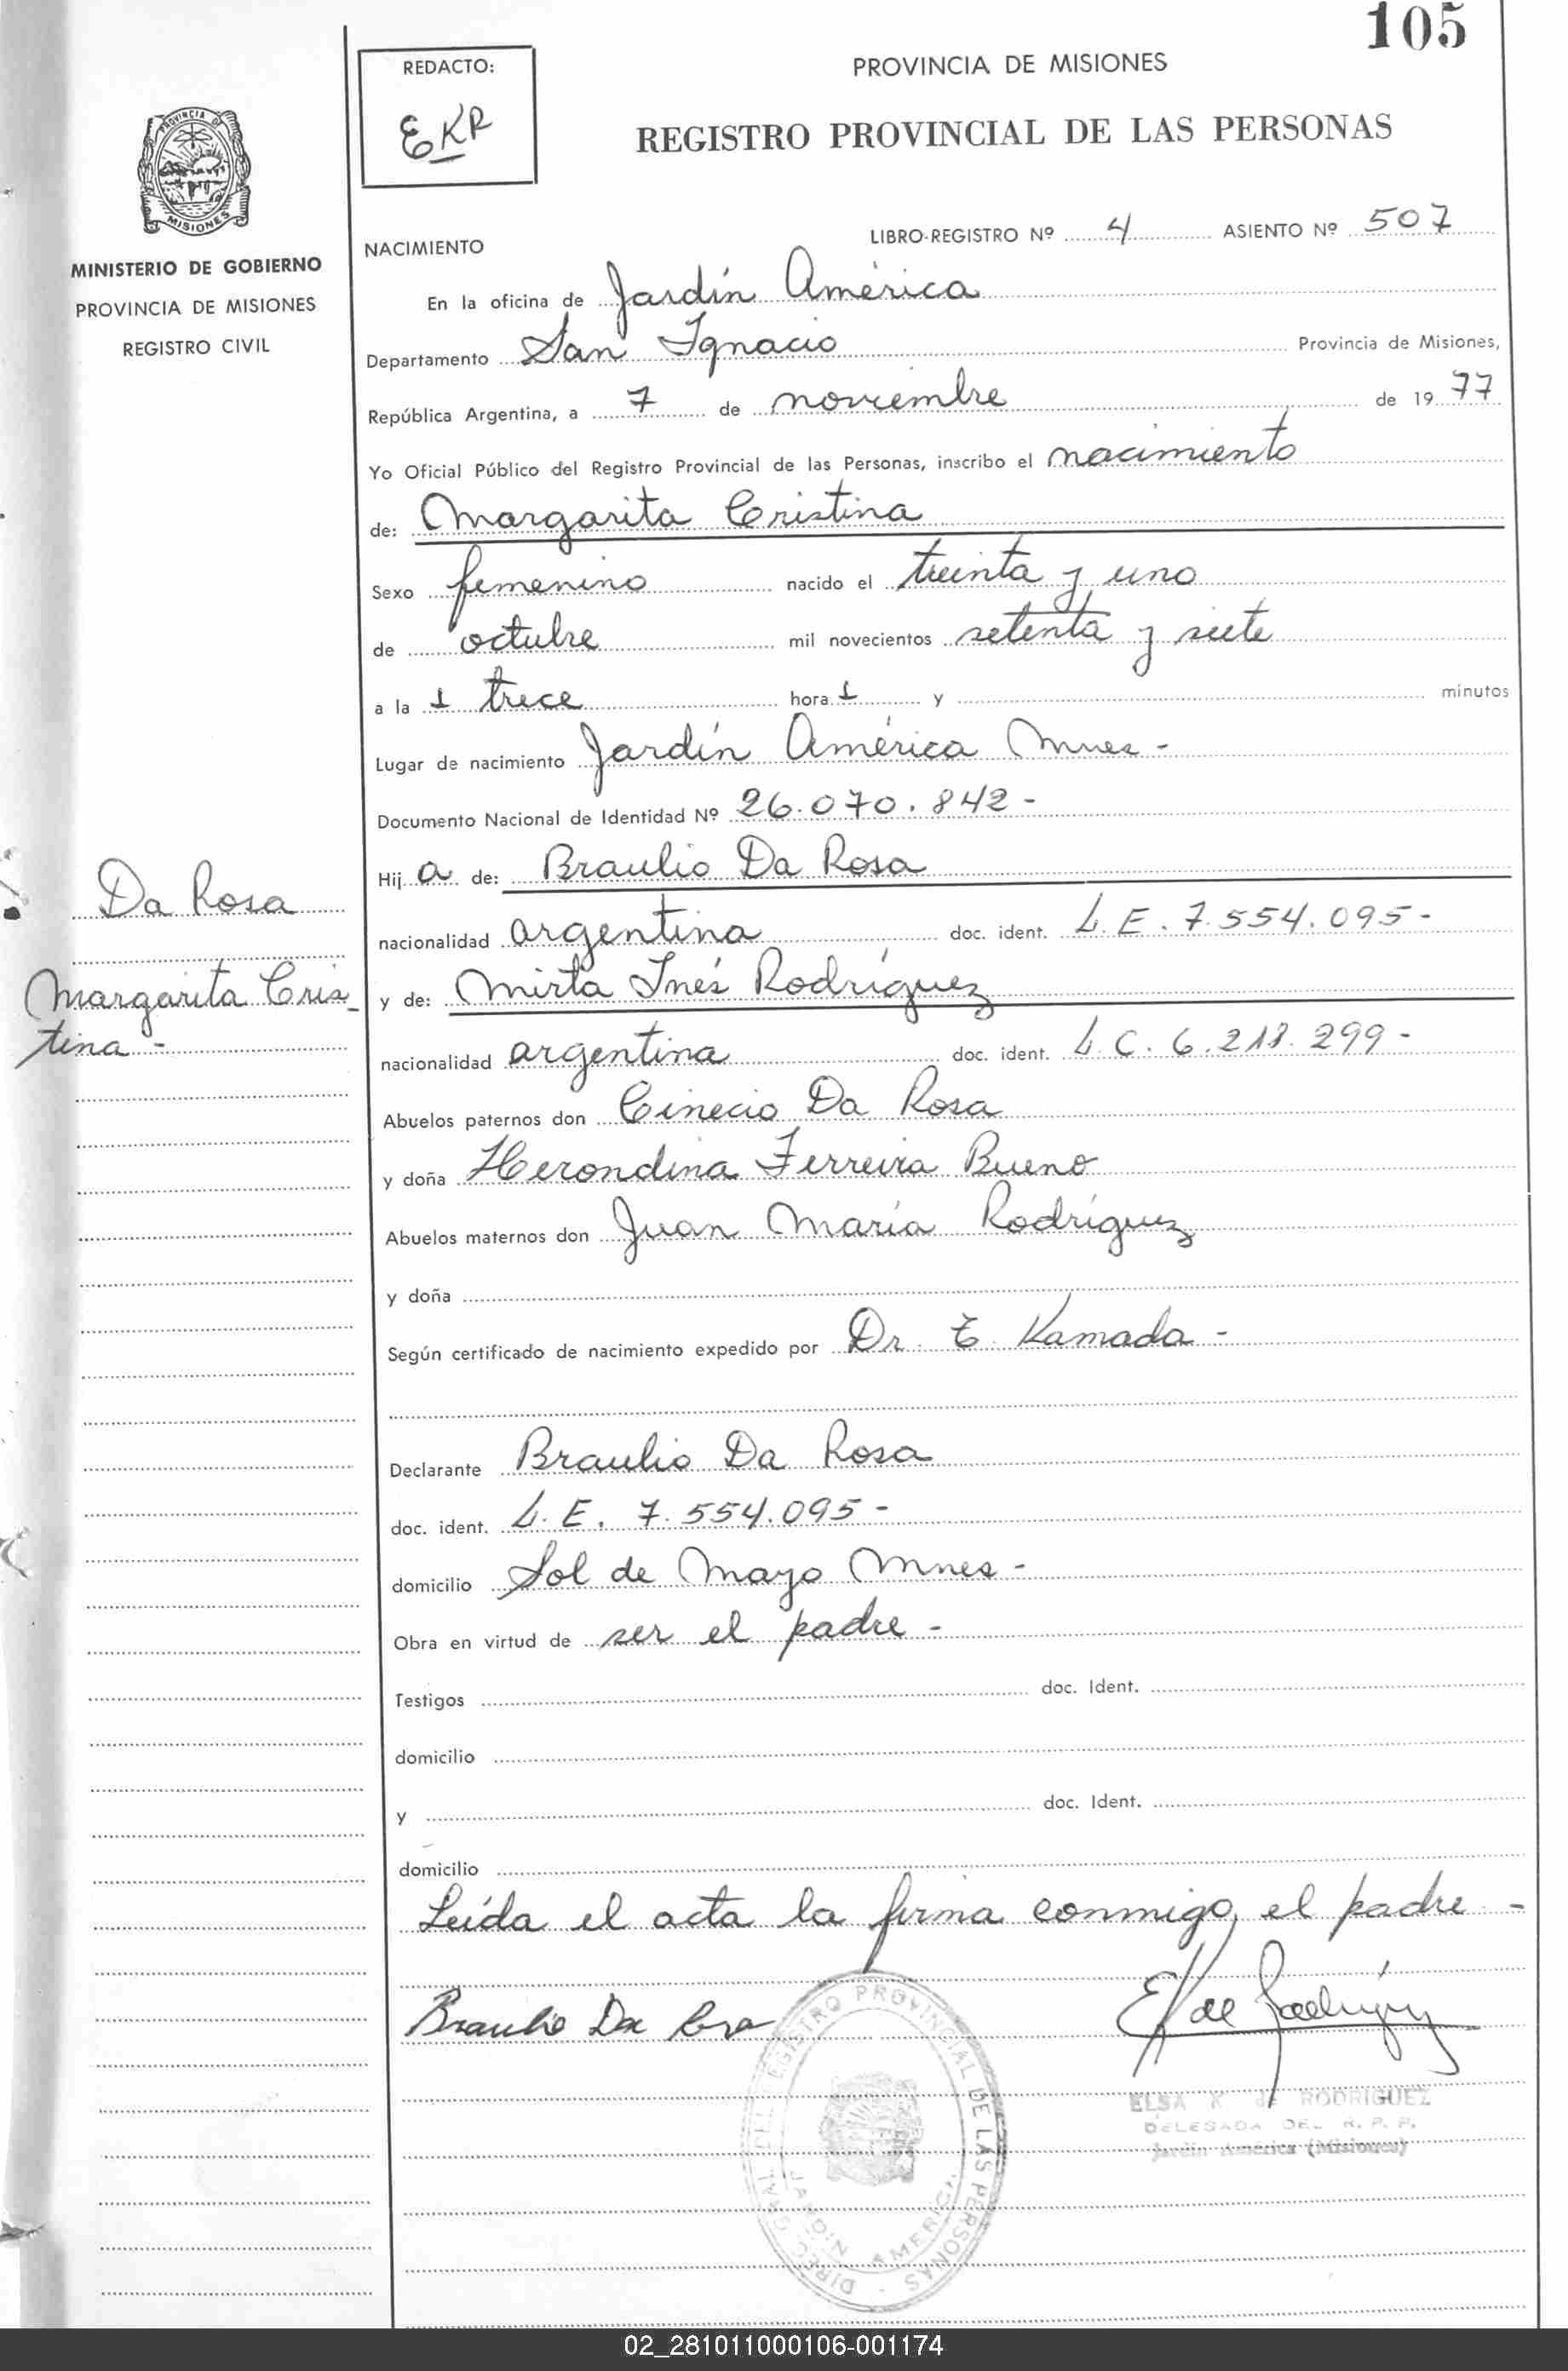 105
REDACTO:
EKR
PROVINCIA DE MISIONES
REGISTRO PROVINCIAL DE LAS PERSONAS
PROVINCIA DE
MISIONES
MINISTERIO DE GOBIERNO
PROVINCIA DE MISIONES
REGISTRO CIVIL
NACIMIENTO
LIBRO-REGISTRO Nº 4 ASIENTO Nº 507
En la oficina de Jardín América
Departamento San Ignacio Provincia de Misiones,
República Argentina, a 7 de noviembre de 1977
Yo Oficial Público del Registro Provincial de las Personas, inscribo el nacimiento
de: Margarita Cristina
Sexo femenino nacido el treinta y uno
de octubre mil novecientos setenta y siete
a la s trece hora s y minutos
Lugar de nacimiento Jardín América Mnes -
Documento Nacional de Identidad Nº 26.070.842-
Hij a de: Braulio Da Rosa
nacionalidad argentina doc. ident. L.E. 7.554.095-
y de: Mirta Inés Rodríguez
nacionalidad argentina doc. ident. L.C. 6.218.299-
Abuelos paternos don Cinecio Da Rosa
y doña Herondina Ferreira Bueno
Abuelos maternos don Juan María Rodríguez
y doña
Según certificado de nacimiento expedido por Dr. E. Kamada -
Declarante Braulio Da Rosa
doc. ident. L.E. 7.554.095-
domicilio Sol de Mayo Mnes -
Obra en virtud de ser el padre -
Testigos doc. Ident.
domicilio
y doc. Ident.
domicilio
Leída el acta la firma conmigo, el padre -
Braulio Da Rosa
Da Rosa
Margarita Cris-
tina -
DIREC. GRAL. DEL REGISTRO PROVINCIAL DE LAS PERSONAS
JARDIN AMERICA
ELSA K. de RODRIGUEZ
DELEGADA DEL R. P. P.
Jardín América (Misiones)
02_281011000106-001174